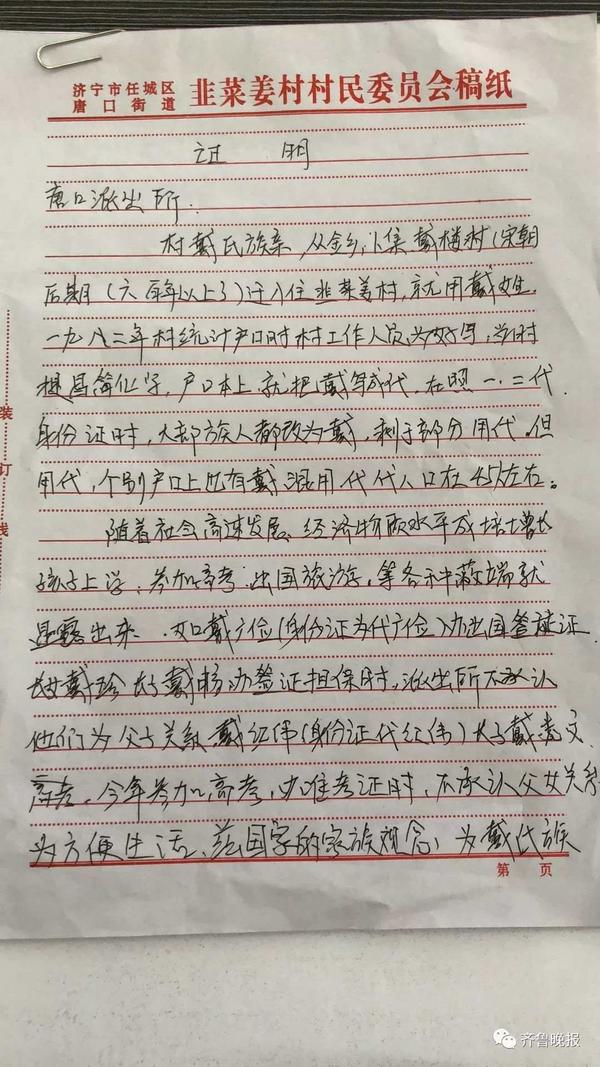 济宁市任城区
唐口街道
韭菜姜村村民委员会稿纸
证 明
唐口派出所.
村戴氏族亲,从金乡,卜集戴楼村(宋朝
后期(六百年以上了)迁入住韭菜姜村,就用戴姓.
一九八二年村统计户口时村工作人员为好写,当时
提倡简化字,户口本上就把戴写成代.在照一.二代.
身份证时,大部族人都改为戴,剩于部分用代.但
用代,个别户口上也有戴、混用代 代人口在45左右。
随着社会高速发展、经济物质水平成培增长
孩子上学.参加高考.出国旅游,等各种蔽端就
显露出来.如戴广位(身份证为代广位)办出国签证
长女戴珍 长子戴 办签证担保时,派出所不承认
他们为父子关系.戴红伟(身份证代红伟)长子戴 文
高考.今年参加高考,办准考证时,不承认父女关系
为方便生活、 国家的家族观念、为戴氏族
装
订
线
第 页
齐鲁晚报